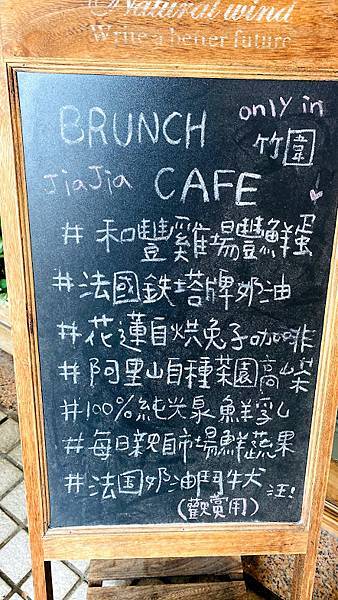 Natural wind
Write a better future
BRUNCH only in
竹圍
JiaJia CAFE
#和豐雞場豐鮮蛋
#法國鉄塔牌奶油
#花蓮自烘兔子咖啡
#阿里山自種茶園高山茶
#100%純光泉鮮乳
#每日親自市場鮮蔬果
#法国奶油鬥牛犬 汪!
(觀賞用)